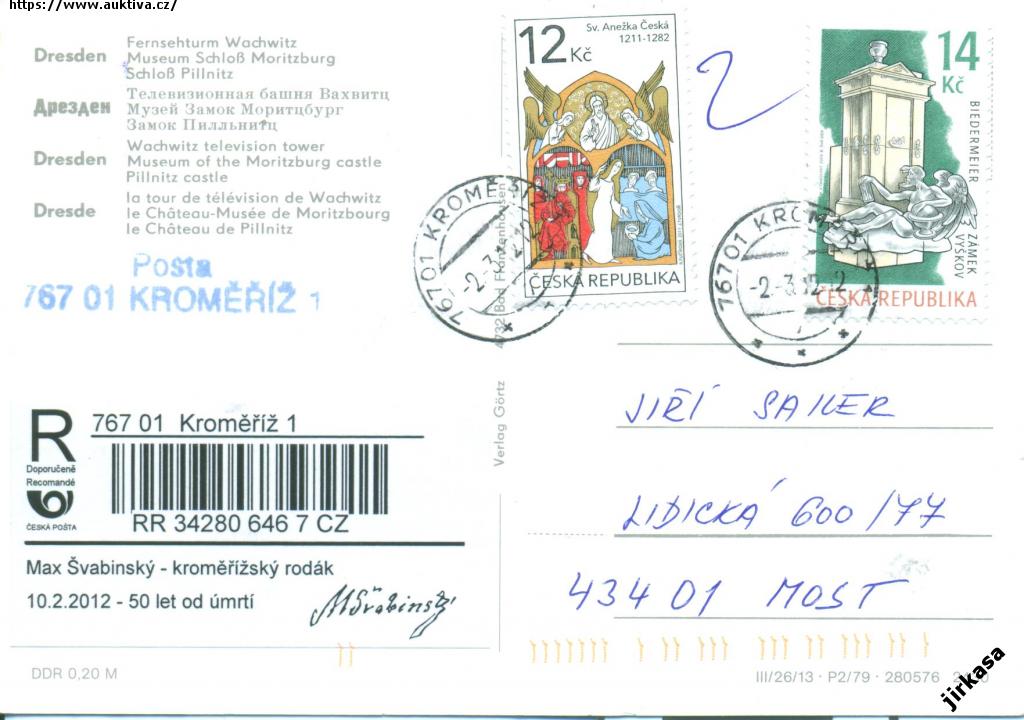 https://www.auktiva.cz/
Dresden
Fernsehturm Wachwitz
Museum Schloß Moritzburg
Schloß Pillnitz
Дрезден
Телевизионная башня Вахвитц
Музей Замок Моритцбург
Замок Пилльнитц
Dresden
Wachwitz television tower
Museum of the Moritzburg castle
Pillnitz castle
Dresde
la tour de télévision de Wachwitz
le Château-Musée de Moritzbourg
le Château de Pillnitz
Pošta
767 01 KROMĚŘÍŽ 1
12 Kč
Sv. Anežka Česká
1211-1282
ČESKÁ REPUBLIKA
2
14
Kč
BIEDERMEIER
ZÁMEK
VYŠKOV
ČESKÁ REPUBLIKA
767 01 KROMĚŘ
-2.-3.
767 01 KROMĚŘ
-2.-3.12-12
Verlag Görtz
R
Doporučeně
Recomandé
ČESKÁ POŠTA
767 01 Kroměříž 1
RR 34280 646 7 CZ
Max Švabinský - kroměřížský rodák
10.2.2012 - 50 let od úmrtí
MŠvabinský
JIŘÍ SAILER
LIDICKÁ 600/77
434 01 MOST
DDR 0,20 M
III/26/13 · P2/79 · 280576
jirkasa